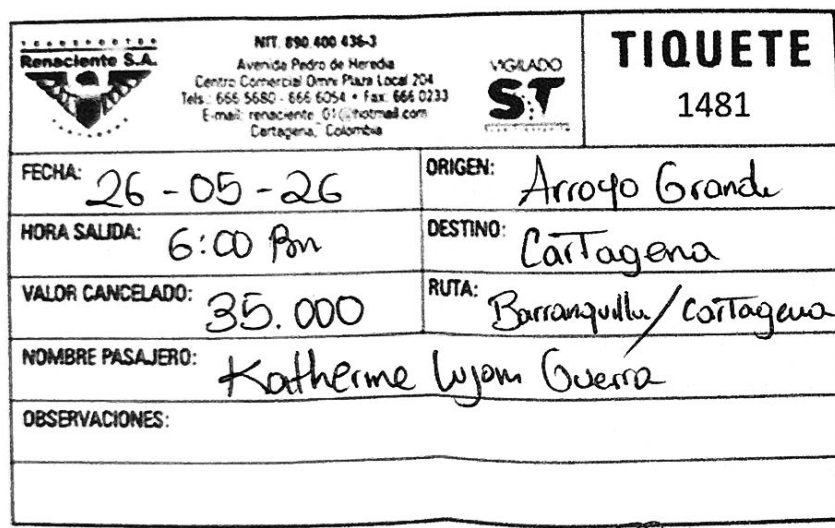 TRANSPORTES
Renaciente S.A.
NIT. 890.400.436-3
Avenida Pedro de Heredia
Centro Comercial Omni Plaza Local 204
Tels.: 666 5680 - 666 6054 • Fax: 666 0233
E-mail: renaciente_01@hotmail.com
Cartagena, Colombia
VIGILADO
ST
TIQUETE
1481
FECHA: 26-05-26
ORIGEN: Arroyo Grande
HORA SALIDA: 6:00 Pm
DESTINO: Cartagena
VALOR CANCELADO: 35.000
RUTA: Barranquilla/Cartagena
NOMBRE PASAJERO: Katherine Lujan Guerra
OBSERVACIONES: